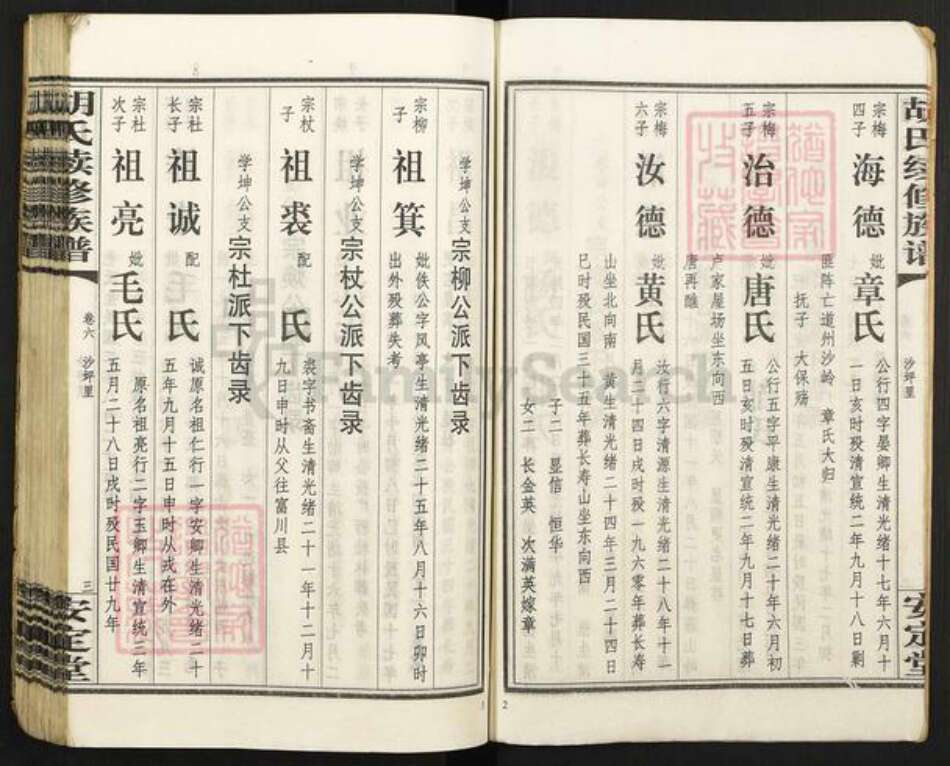 胡氏续修族谱
沙坪里
安定堂
宗梅四子
海德
妣章氏
公行四字晏卿生清光绪十七年六月十
一日亥时殁清宣统二年九月十八日剿
匪阵亡道州沙岭 章氏大归
抚子 大保殇
宗梅五子
治德
妣唐氏
公行五字平康生清光绪二十年六月初
五日亥时殁清宣统二年九月十七日葬
卢家屋场坐东向西
唐再醮
宗梅六子
汝德
妣黄氏
汝行六字清源生清光绪二十八年十一
月二十四日戌时殁一九六零年葬长寿
山坐北向南 黄生清光绪二十四年三月二十四日
巳时殁民国三十五年葬长寿山坐东向西
子二 显信 恒华
女二 长金英 次满英嫁章
2
学坤公支宗柳公派下齿录
宗柳子
祖箕
妣佚公字风亭生清光绪二十五年八月十六日卯时
出外殁葬失考
学坤公支宗杖公派下齿录
宗杖子
祖裘
配氏
裘字书斋生清光绪二十一年十二月十
九日申时从父往富川县
学坤公支宗杜派下齿录
宗杜长子
祖诚
配氏
诚原名祖仁行一字安卿生清光绪二十
五年九月十五日申时从戎在外
宗杜次子
祖亮
妣毛氏
原名祖亮行二字玉卿生清宣统三年
五月二十八日戌时殁民国廿九年
胡氏续修族谱
卷六 沙坪里
三
安定堂
FamilySearch